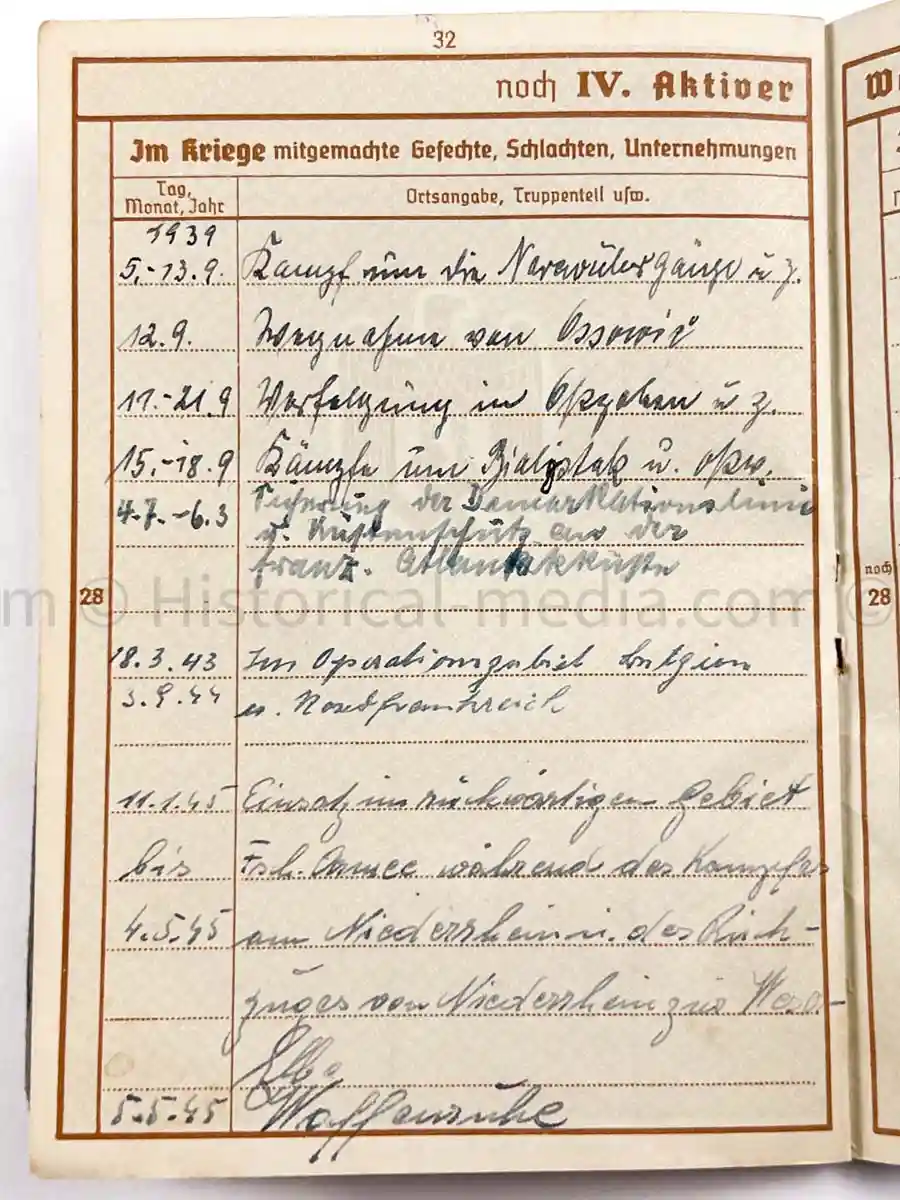 32
noch IV. Aktiver
Im Kriege mitgemachte Gefechte, Schlachten, Unternehmungen
Tag, Monat, Jahr
Ortsangabe, Truppenteil usw.
1939
5.-13.9. Kampf um die Narewübergänge u z.
12.9. Wegnahme von Ossowic
11.-21.9 Verfolgung in Ostpolen u z.
15.-18.9 Kämpfe um Bialystok u.
4.7.-6.3 Sicherung der Demarkationslinie
u. Küstenschutz an der
franz. Atlantikküste
28
18.3.43 Im Operationsgebiet Belgien
3.9.44 u. Nordfrankreich
11.1.45 Einsatz im rückwärtigen Gebiet
bis Fsch. Armee während des Kampfes
4.5.45 am Niederrhein u. des Rück-
zuges vom Niederrhein zur Weser-
Elbe
5.5.45 Waffenruhe
noch
28
m © Historical-media.com ©